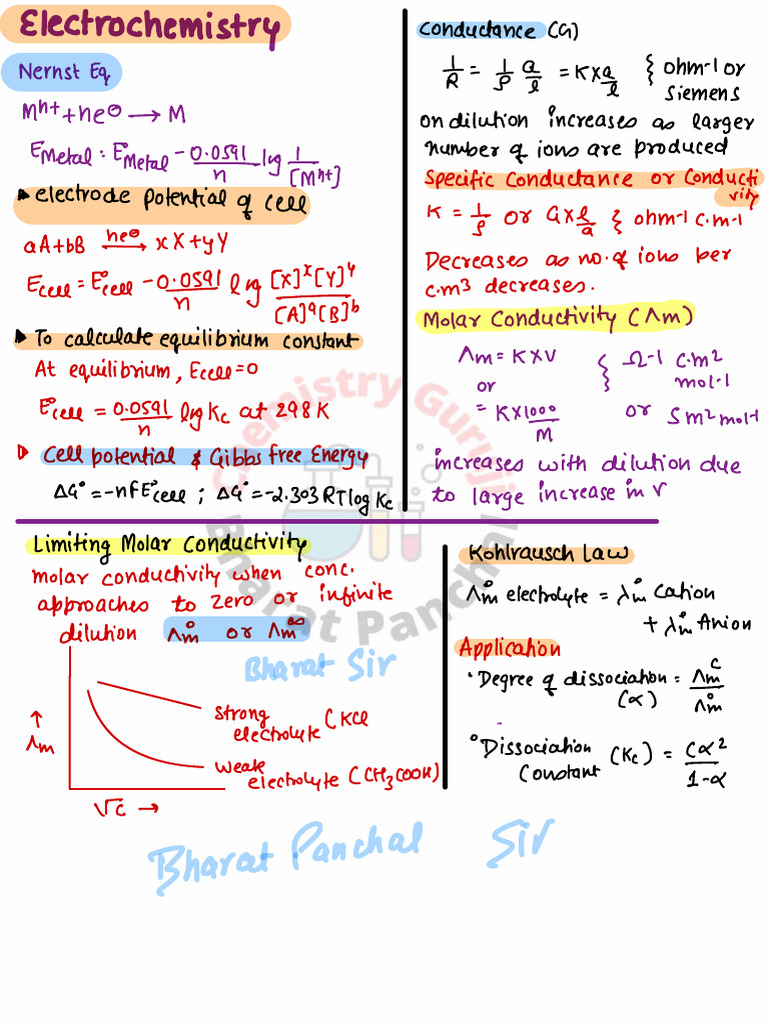 Electrochemistry
Nernst Eq
Mⁿ⁺ + ne⊖ → M
E Metal : E° Metal − 0.0591/n log 1/[Mⁿ⁺]
▸ electrode potential of cell
aA + bB —ne⊖→ xX + yY
Ecell = E°cell − 0.0591/n log [X]ˣ[Y]ʸ/[A]ᵃ[B]ᵇ
▸ To calculate equilibrium constant
At equilibrium, Ecell = 0
E°cell = 0.0591/n log Kc at 298 K
▷ Cell potential & Gibbs free Energy
ΔG° = −nFE°cell ; ΔG° = −2.303 RT log Kc
Conductance (G)
1/R = 1/ρ a/l = K × a/l { ohm-1 or
Siemens
on dilution increases as larger
number of ions are produced
Specific Conductance or Conducti
vity
K = 1/ρ or G × l/a { ohm-1 c.m-1
Decreases as no. of ions per
c.m³ decreases.
Molar Conductivity (Λm)
Λm = K × V { Ω-1 c.m²
mol-1
or
= K × 1000/M or S m² mol-1
increases with dilution due
to large increase in V
Limiting Molar Conductivity
molar conductivity when conc.
approaches to zero or infinite
dilution Λ°m or Λm∞
Bharat Sir
↑
Λm
strong
electrolyte (KCl
weak
electrolyte (CH3COOH)
√C →
Kohlrausch Law
Λ°m electrolyte = λ°m Cation
+ λ°m Anion
Application
• Degree of dissociation = Λmᶜ/Λ°m
(α)
• Dissociation
Constant (Kc) = Cα²/1-α
Bharat Panchal Sir
Chemistry Guruji
Bharat Panchal